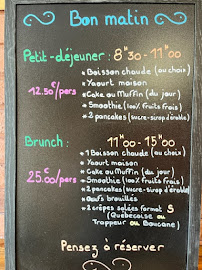 Bon matin
Petit-déjeuner : 8H30 - 11H00
* Boisson chaude (au choix)
* Yaourt maison
12.50€/pers
* Cake ou Muffin (du jour)
* Smoothie (100% fruits frais)
* 2 pancakes (sucre-sirop d'érable)
Brunch : 11H00 - 15H00
* 1 Boisson chaude (au choix)
* Yaourt maison
* Cake ou Muffin (du jour)
25.00€/pers
* Smoothie (100% fruits frais)
* 2 pancakes (sucre-sirop d'érable)
* Oeufs brouillés
* 2 crêpes salées format S
(Québécoise ou
Trappeur ou Boucane)
Pensez à réserver